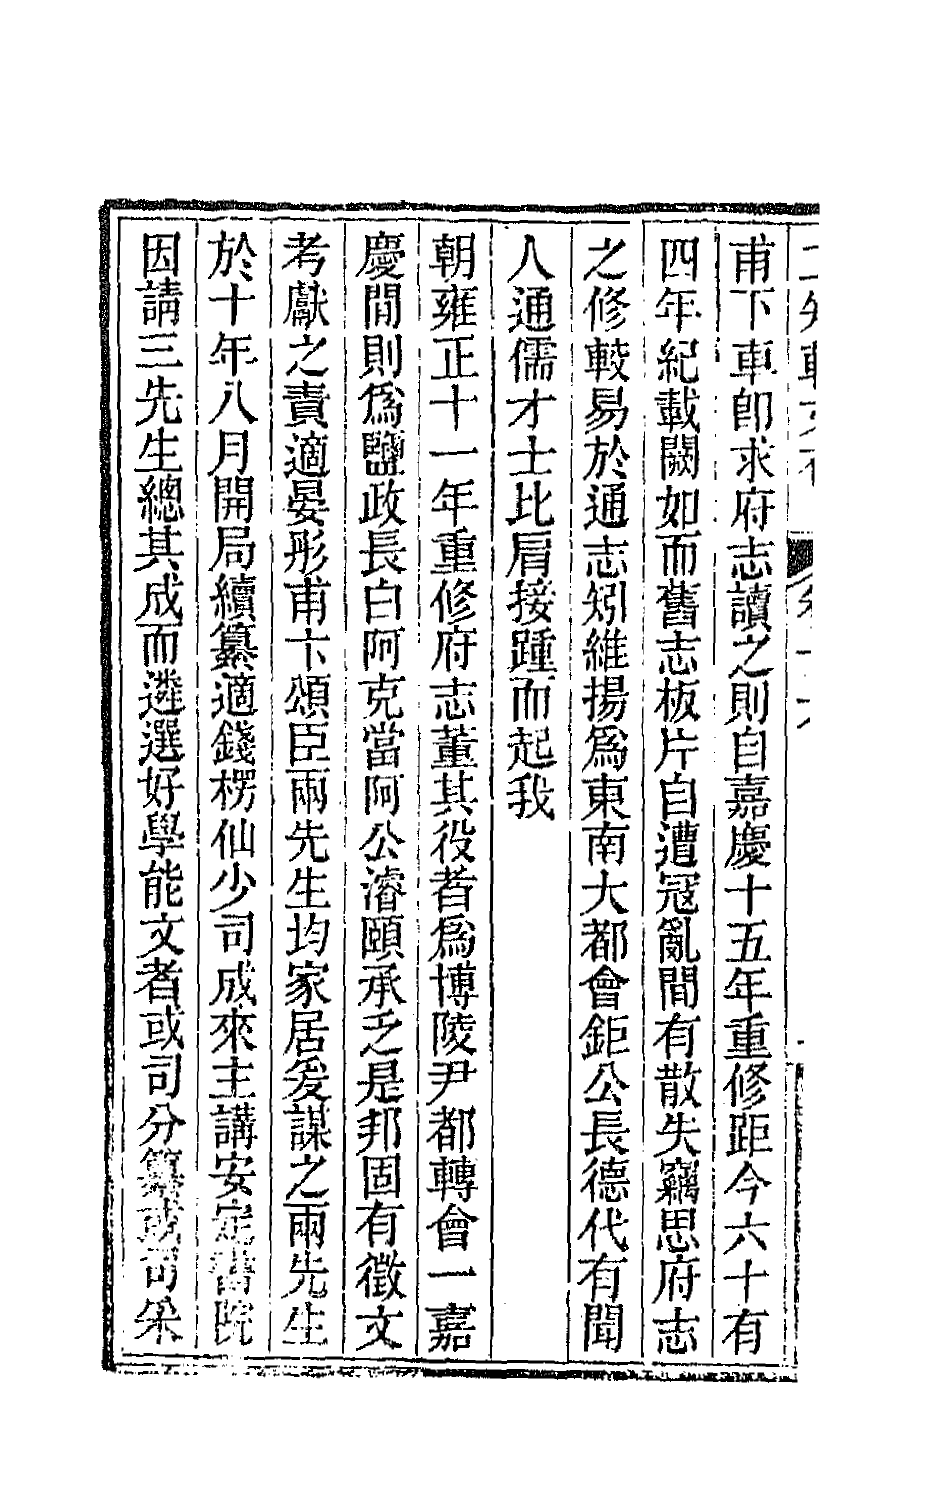 甫下車卽求府志讀之則自嘉慶十五年重修距今六十有
四年紀載闕如而舊志板片自遭寇亂間有散失竊思府志
之修較易於通志矧維揚爲東南大都會鉅公長德代有聞
人通儒才士比肩接踵而起我
朝雍正十一年重修府志董其役者爲博陵尹都轉會一嘉
慶間則爲鹽政長白阿克當阿公濬頤承乏是邦固有徵文
考獻之責適晏彤甫卞頌臣兩先生均家居爰謀之兩先生
於十年八月開局續纂適錢楞仙少司成來主講安定書院
因請三先生總其成而遴選好學能文者或司分纂或司采